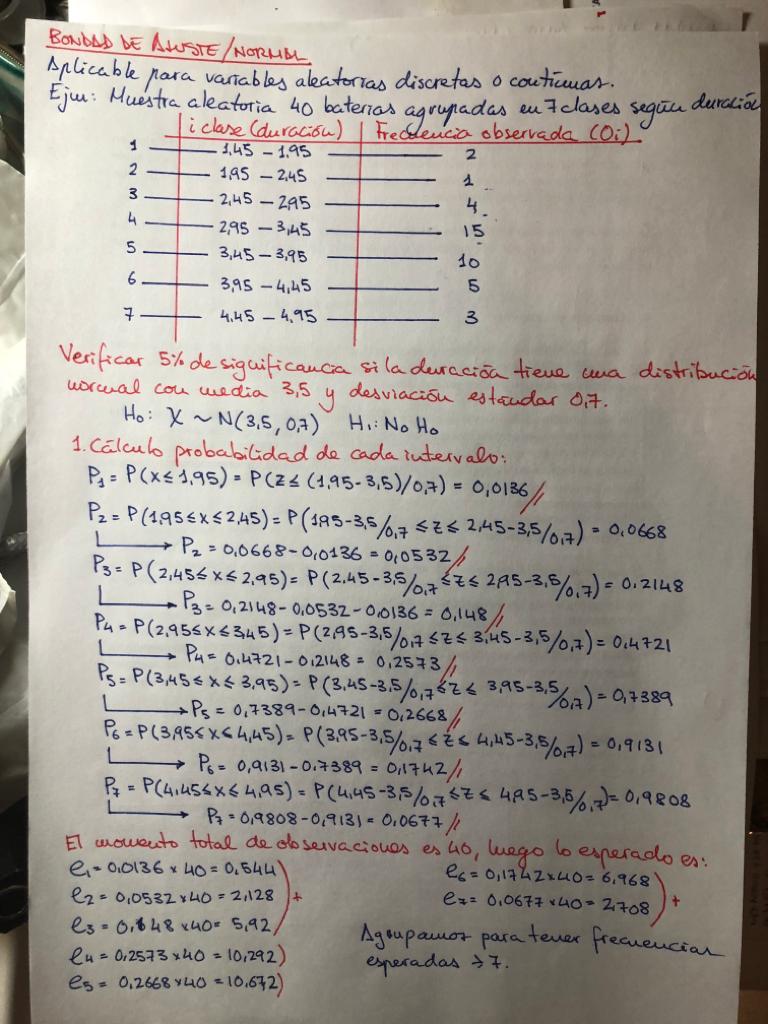 BONDAD DE AJUSTE/NORMAL
Aplicable para variables aleatorias discretas o continuas.
Ejm: Muestra aleatoria 40 baterias agrupadas en 7 clases según duración
i clase (duración) Frecuencia observada (Oi)
1 1,45 – 1,95 2
2 1,95 – 2,45 1
3 2,45 – 2,95 4
4 2,95 – 3,45 15
5 3,45 – 3,95 10
6 3,95 – 4,45 5
7 4,45 – 4,95 3
Verificar 5% de significancia si la duración tiene una distribución
normal con media 3,5 y desviación estándar 0,7.
H₀: X ~ N(3,5, 0,7) H₁: No H₀
1. Cálculo probabilidad de cada intervalo:
P₁ = P(x ≤ 1,95) = P(z ≤ (1,95-3,5)/0,7) = 0,0136//
P₂ = P(1,95 ≤ x ≤ 2,45) = P(1,95-3,5/0,7 ≤ z ≤ 2,45-3,5/0,7) = 0,0668
→ P₂ = 0,0668-0,0136 = 0,0532//
P₃ = P(2,45 ≤ x ≤ 2,95) = P(2,45-3,5/0,7 ≤ z ≤ 2,95-3,5/0,7) = 0.2148
→ P₃ = 0,2148-0,0532-0,0136 = 0,148//
P₄ = P(2,95 ≤ x ≤ 3,45) = P(2,95-3,5/0,7 ≤ z ≤ 3,45-3,5/0,7) = 0,4721
→ P₄ = 0,4721-0,2148 = 0,2573//
P₅ = P(3,45 ≤ x ≤ 3,95) = P(3,45-3,5/0,7 ≤ z ≤ 3,95-3,5/0,7) = 0,7389
→ P₅ = 0,7389-0,4721 = 0,2668//
P₆ = P(3,95 ≤ x ≤ 4,45) = P(3,95-3,5/0,7 ≤ z ≤ 4,45-3,5/0,7) = 0,9131
→ P₆ = 0,9131-0,7389 = 0,1742//
P₇ = P(4,45 ≤ x ≤ 4,95) = P(4,45-3,5/0,7 ≤ z ≤ 4,95-3,5/0,7) = 0,9808
→ P₇ = 0,9808-0,9131 = 0,0677//
El momento total de observaciones es 40, luego lo esperado es:
e₁ = 0,0136 x 40 = 0,544
e₂ = 0,0532 x 40 = 2,128 +
e₃ = 0,148 x 40 = 5,92
e₄ = 0,2573 x 40 = 10,292
e₅ = 0,2668 x 40 = 10,672
e₆ = 0,1742 x 40 = 6,968
e₇ = 0,0677 x 40 = 2,708 +
Agrupamos para tener frecuencias
esperadas → 7.